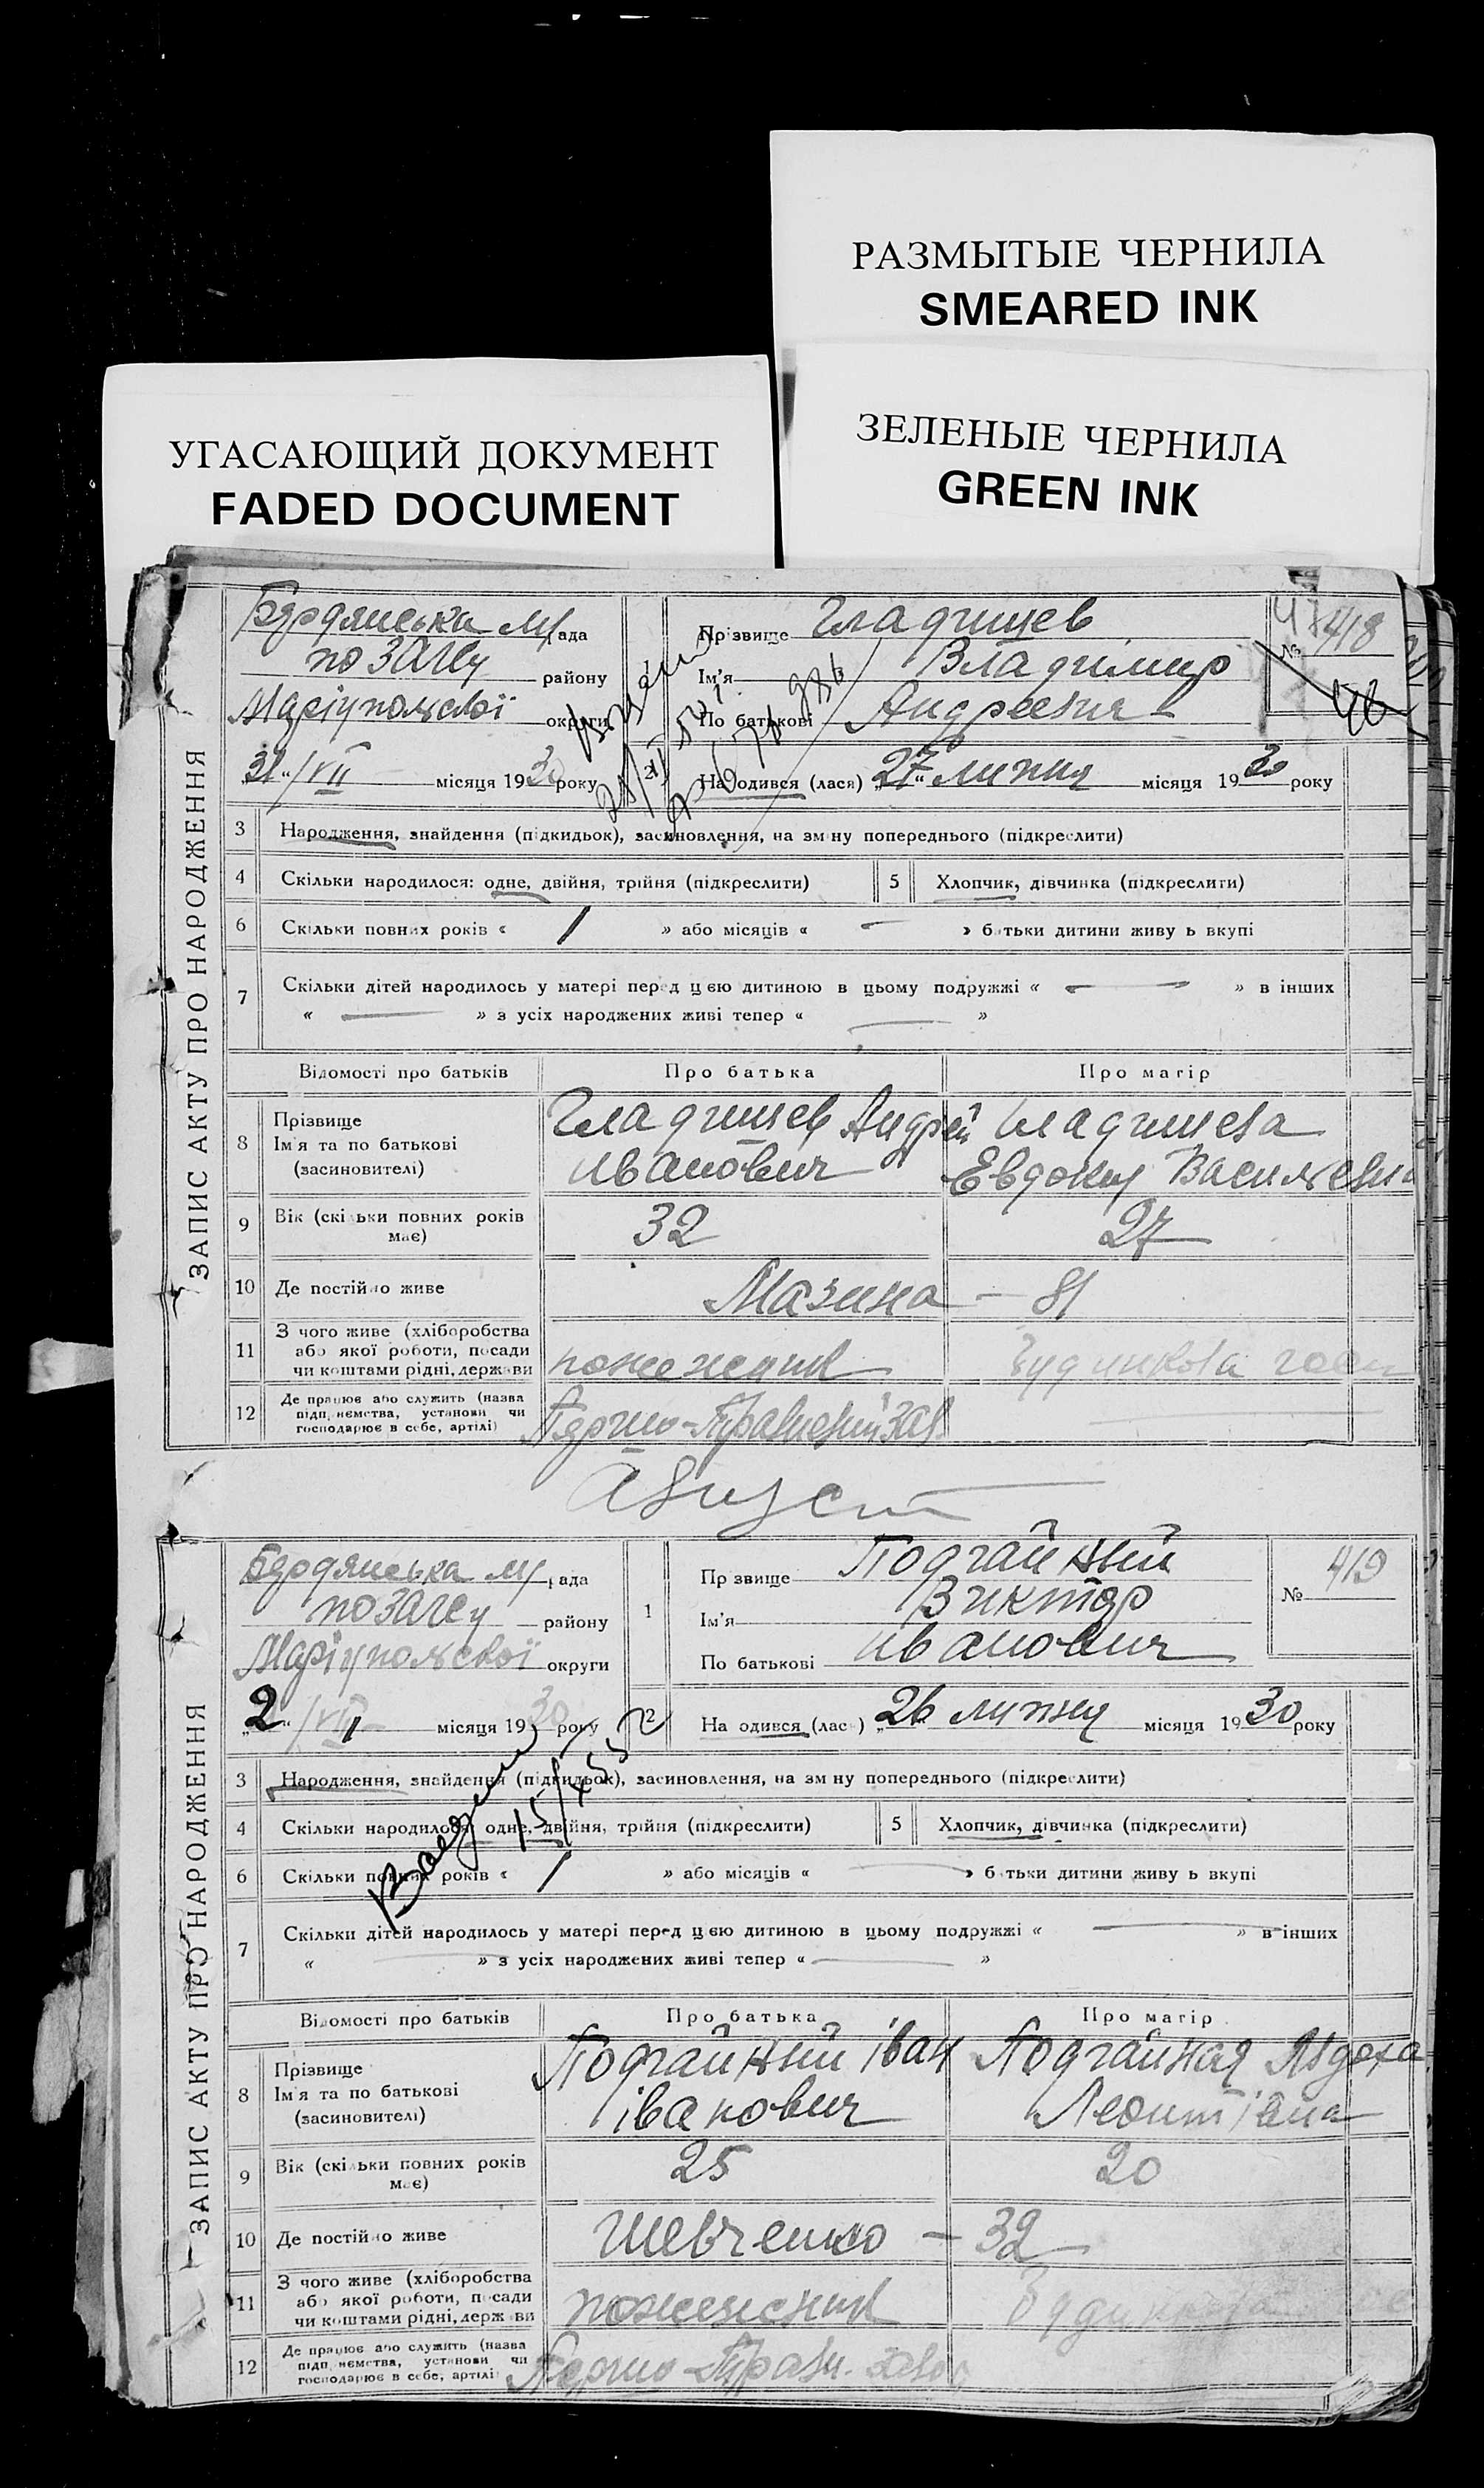 РАЗМЫТЫЕ ЧЕРНИЛА
SMEARED INK
ЗЕЛЕНЫЕ ЧЕРНИЛА
GREEN INK
УГАСАЮЩИЙ ДОКУМЕНТ
FADED DOCUMENT
ЗАПИС АКТУ ПРО НАРОДЖЕННЯ
Бердянська м рада
по ЗАГСу району
Маріупольської округи
31/VII місяця 1930 року
Прізвище Гладчищев
Ім'я Владимир
По батькові Андреевич
№ 418
2 Народився (лася) „27" липня місяця 1930 року
3 Народження, знайдення (підкидьок), засиновлення, на зміну попереднього (підкреслити)
4 Скільки народилося: одне, двійня, трійня (підкреслити)
5 Хлопчик, дівчинка (підкреслити)
6 Скільки повних років « 1 » або місяців « — » батьки дитини живуть вкупі
7 Скільки дітей народилось у матері перед цією дитиною в цьому подружжі « — » в інших
« — » з усіх народжених живі тепер « — »
Відомості про батьків Про батька Про матір
8 Прізвище
Ім'я та по батькові
(засиновителі)
Гладчищев Андрей
Иванович
Гладчищева
Евдокия Васильевна
9 Вік (скільки повних років
має)
32 27
10 Де постійно живе Мазина — 81
11 З чого живе (хліборобства
або якої роботи, посади
чи коштами рідні, держави
пожежник
12 Де працює або служить (назва
підприємства, установи чи
господарює в себе, артілі)
Август
ЗАПИС АКТУ ПРО НАРОДЖЕННЯ
Бердянська м рада
по ЗАГСу району
Маріупольської округи
„2" /VIII місяця 1930 року
1 Прізвище Подгайный
Ім'я Виктор
По батькові Иванович
№ 419
2 Народився (лась) „26" липня місяця 1930 року
3 Народження, знайдення (підкидьок), засиновлення, на зміну попереднього (підкреслити)
4 Скільки народилося: одне, двійня, трійня (підкреслити)
5 Хлопчик, дівчинка (підкреслити)
6 Скільки повних років « 1 » або місяців « — » батьки дитини живуть вкупі
7 Скільки дітей народилось у матері перед цією дитиною в цьому подружжі « — » в інших
« — » з усіх народжених живі тепер « — »
Відомості про батьків Про батька Про матір
8 Прізвище
Ім'я та по батькові
(засиновителі)
Подгайный іван
іванович
Подгайная
9 Вік (скільки повних років
має)
25 20
10 Де постійно живе Шевченко — 32
11 З чого живе (хліборобства
або якої роботи, посади
чи коштами рідні, держави
пожежник
12 Де працює або служить (назва
підприємства, установи чи
господарює в себе, артілі